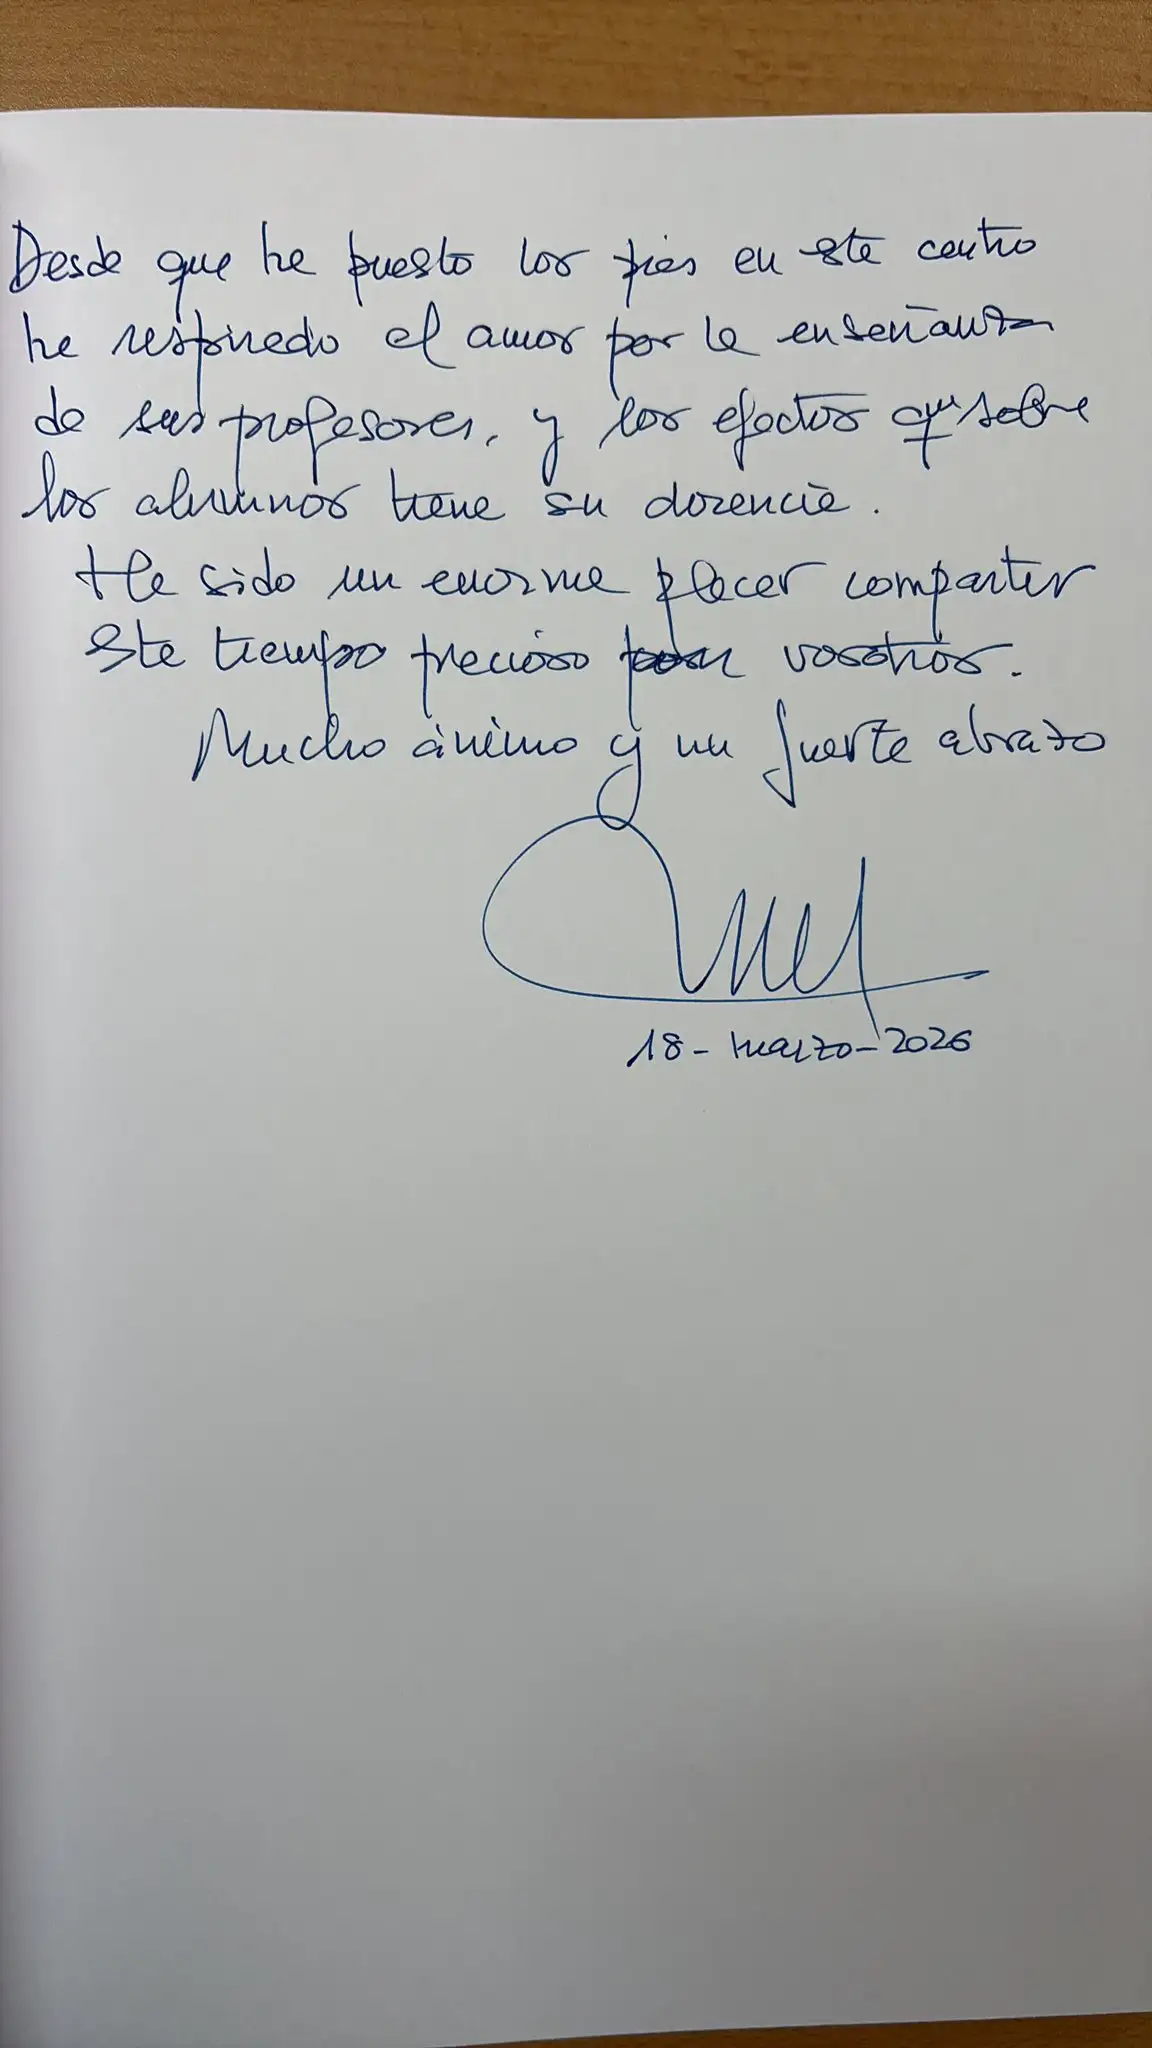 Desde que he puesto los pies en este centro
he respirado el amor por la enseñanza
de sus profesores, y los efectos que sobre
los alumnos tiene su docencia.
Ha sido un enorme placer compartir
este tiempo precioso con vosotros.
Mucho ánimo y un fuerte abrazo
18-marzo-2026